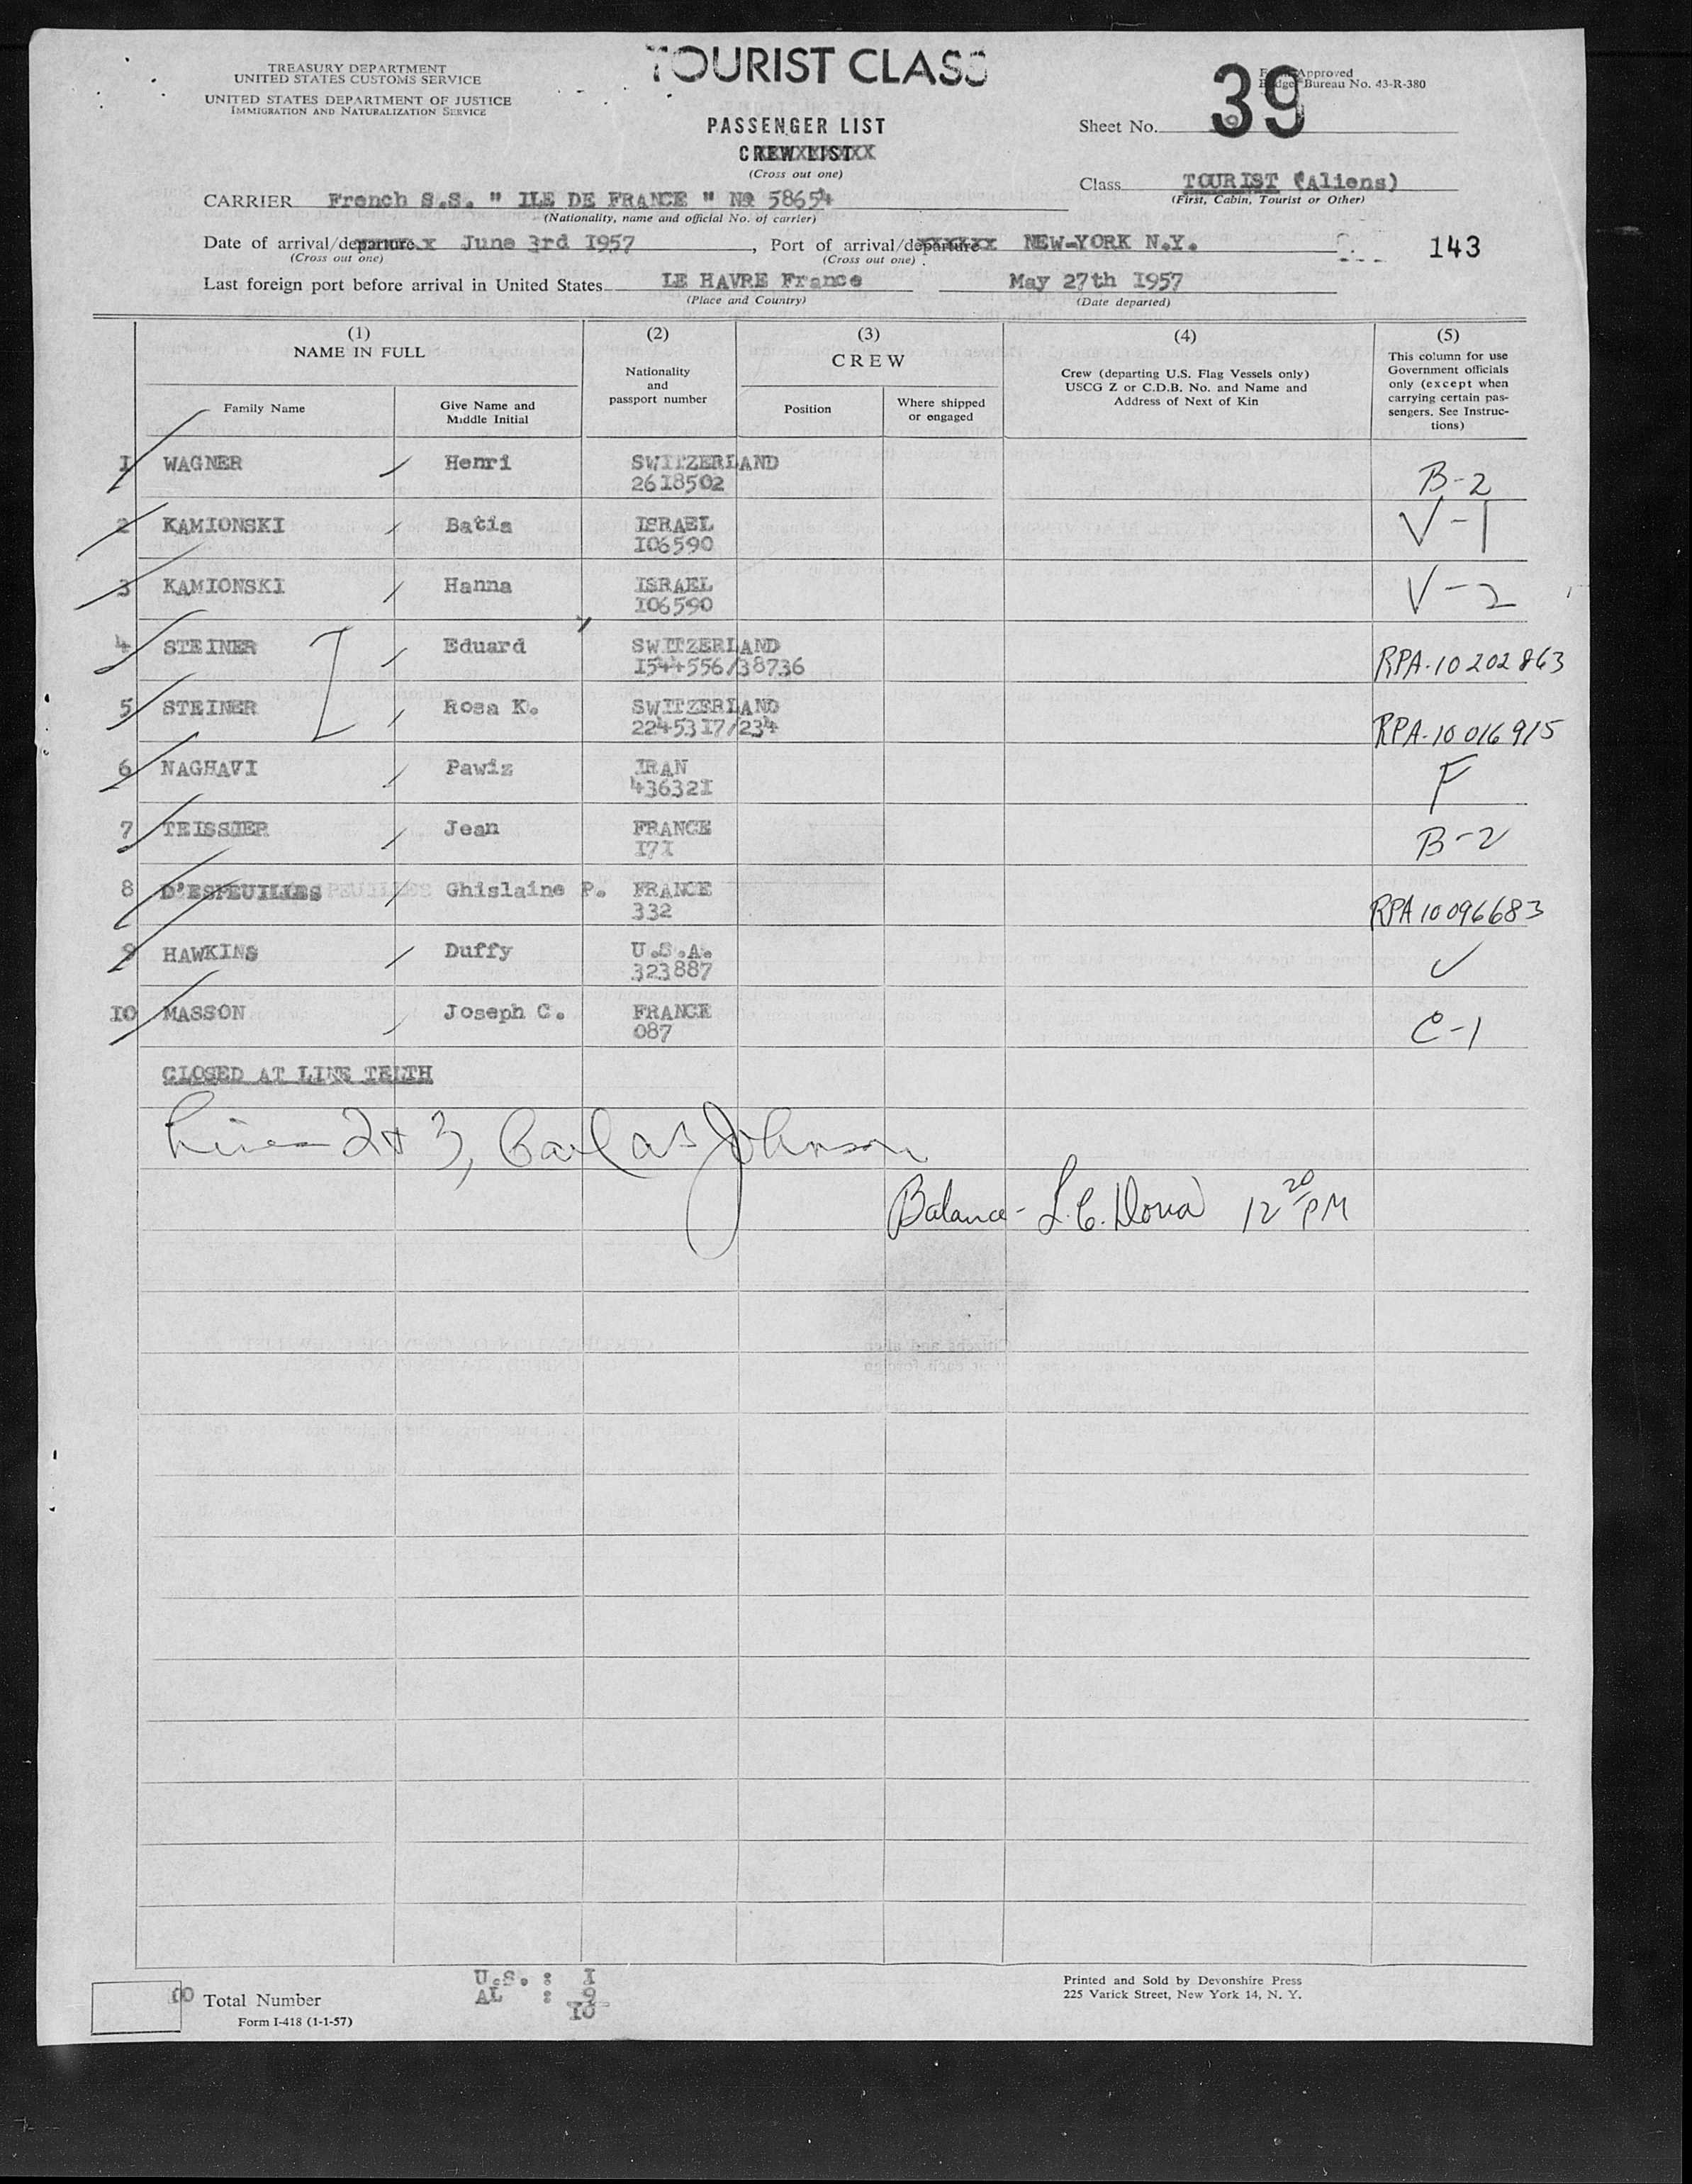 TOURIST CLASS
TREASURY DEPARTMENT
UNITED STATES CUSTOMS SERVICE
UNITED STATES DEPARTMENT OF JUSTICE
IMMIGRATION AND NATURALIZATION SERVICE
Approved
Bureau No. 43-R-380
PASSENGER LIST
CREW LIST
(Cross out one)
Sheet No. 39
CARRIER French S.S. " ILE DE FRANCE " No 58654
(Nationality, name and official No. of carrier)
Class TOURIST (Aliens)
(First, Cabin, Tourist or Other)
Date of arrival/departure June 3rd I957, Port of arrival/departure NEW-YORK N.Y.
(Cross out one) (Cross out one)
143
Last foreign port before arrival in United States LE HAVRE France May 27th I957
(Place and Country) (Date departed)
(1) (2) (3) (4) (5)
NAME IN FULL
Family Name
Give Name and
Middle Initial
Nationality
and
passport number
CREW
Position
Where shipped
or engaged
Crew (departing U.S. Flag Vessels only)
USCG Z or C.D.B. No. and Name and
Address of Next of Kin
This column for use
Government officials
only (except when
carrying certain pas-
sengers. See Instruc-
tions)
I WAGNER Henri SWITZERLAND
26I8502 B-2
2 KAMIONSKI Batia ISRAEL
I06590 V-1
3 KAMIONSKI Hanna ISRAEL
I06590 V-2
4 STEINER Eduard SWITZERLAND
I544556/38736 RPA-10202863
5 STEINER Rosa K. SWITZERLAND
22453I7/234 RPA-10016915
6 NAGHAVI Pawiz IRAN
43632I F
7 TEISSIER Jean FRANCE
I7I B-2
8 D'ESPEUILLES Ghislaine P. FRANCE
332 RPA 10096683
9 HAWKINS Duffy U.S.A.
323887
IO MASSON Joseph C. FRANCE
087 C-1
CLOSED AT LINE TENTH
Lines 2 & 3, Carl as Johnson
Balance - 12 20 PM
U.S. : I
AL : 9
IO
IO Total Number
Form I-418 (1-1-57)
Printed and Sold by Devonshire Press
225 Varick Street, New York 14, N. Y.